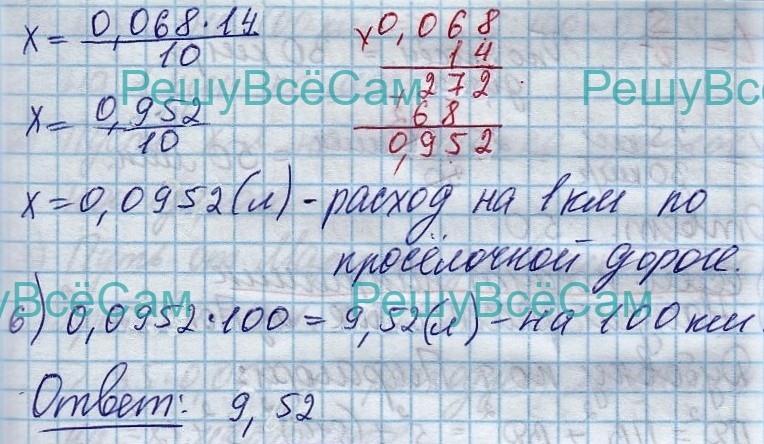 x = 0,068·14 / 10
x 0,068
14
РешуВсёСам
272
РешуВсёСам
+ 68
0,952
x = 0,952 / 10
x = 0,0952 (л) - расход на 1 км по
просёлочной дороге.
уВсёСам
РешуВсёСам
б) 0,0952·100 = 9,52 (л) - на 100 км.
Ответ: 9,52